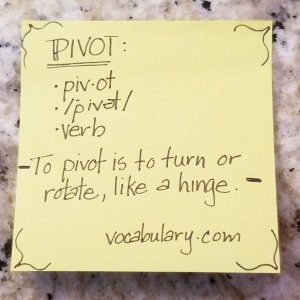 PIVOT:
· piv·ot
· /pivət/
· verb
-To pivot is to turn or
rotate, like a hinge. -
vocabulary.com